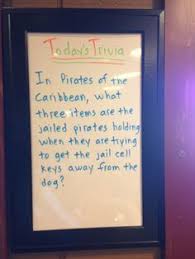 Todays Trivia
In Pirates of the
Caribbean, what
three items are the
jailed pirates holding
when they are trying
to get the jail cell
keys away from the
dog?